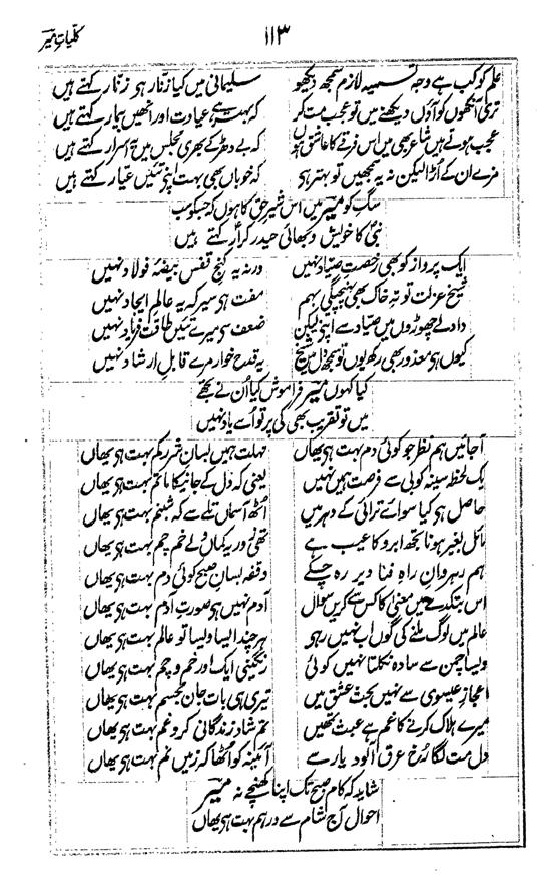 ۱۱۳
کلیاتِ میر
علم کو کب ہے وجہ تسمیہ لازم سمجھ دیکھو
سلیمانی میں کیا زنّار ہے زنّار کہتے ہیں
تری آنکھوں کو آؤں دیکھنے میں تو عجب مت کر
کہ بہتر ہے عیادت اور انھیں بیمار کہتے ہیں
عجب ہوتے ہیں شاعر بھی میں اس فرقے کا عاشق ہوں
کہ بے دھڑکے بھری مجلس میں یہ اسرار کہتے ہیں
مزے ان کے اڑا لیکن نہ یہ سمجھیں تو بہتر ہے
کہ خوباں بھی بہت اپنے تئیں عیار کہتے ہیں
سگ کو میر میں اس شیرِ حق کا ہوں کہ جس کو سب
نبی کا خویش و بھائی حیدرِ کرّار کہتے ہیں
ایک پرواز کو بھی رخصتِ صیاد نہیں
ورنہ یہ کنجِ قفس بیضۂ فولاد نہیں
شیخ عزلت تو تہِ خاک بھی پہنچے گی بہم
مفت ہے سیر کہ یہ عالمِ ایجاد نہیں
داد لے چھوڑوں میں صیاد سے اپنی لیکن
ضعف سے میرے تئیں طاقتِ فریاد نہیں
کیوں ہی معذور بھی رکھ یوں تو سمجھ دل میں شیخ
یہ قدح خوار مرے قابلِ ارشاد نہیں
کیا کہوں میر فراموش کیا اُن نے تجھے
میں تو تقریب بھی کی پر تو اُسے یاد نہیں
آجائیں ہم نظر جو کوئی دم بہت ہے یھاں
مہلت ہمیں بسانِ شرر کم بہت ہے یھاں
یک لحظہ سینہ کوبی سے فرصت ہمیں نہیں
یعنی کہ دل کے جانے کا ماتم بہت ہے یھاں
حاصل ہے کیا سواے ترائی کے دہر میں
اُٹھ آسماں تلے سے کہ شبنم بہت ہے یھاں
مائل بغیر ہونا تجھ ابرو کا عیب ہے
تھی زور یہ کماں ولے خم چم بہت ہے یھاں
ہم رہروانِ راہِ فنا دیر رہ چکے
وقفہ بسانِ صبح کوئی دم بہت ہے یھاں
اس بتکدے میں معنی کا کس سے کریں سوال
آدم نہیں ہے صورتِ آدم بہت ہے یھاں
عالم میں لوگ ملنے کی گوں اب نہیں رہے
ہر چند ایسا ویسا تو عالم بہت ہے یھاں
ویسا چمن سے سادہ نکلتا نہیں کوئی
رنگینی ایک اور خم و چم بہت ہے یھاں
اعجازِ عیسوی سے نہیں بحث عشق میں
تیری ہی بات جانِ مجسم بہت ہے یھاں
میرے ہلاک کرنے کا غم ہے عبث تمھیں
تم شاد زندگانی کرو غم بہت ہے یھاں
دل مت لگا رُخِ عرق آلودِ یار سے
آئینے کو اُٹھا کہ زمیں نم بہت ہے یھاں
شاید کہ کام صبح تک اپنا کھنچے نہ میر
احوال آج شام سے درہم بہت ہے یھاں